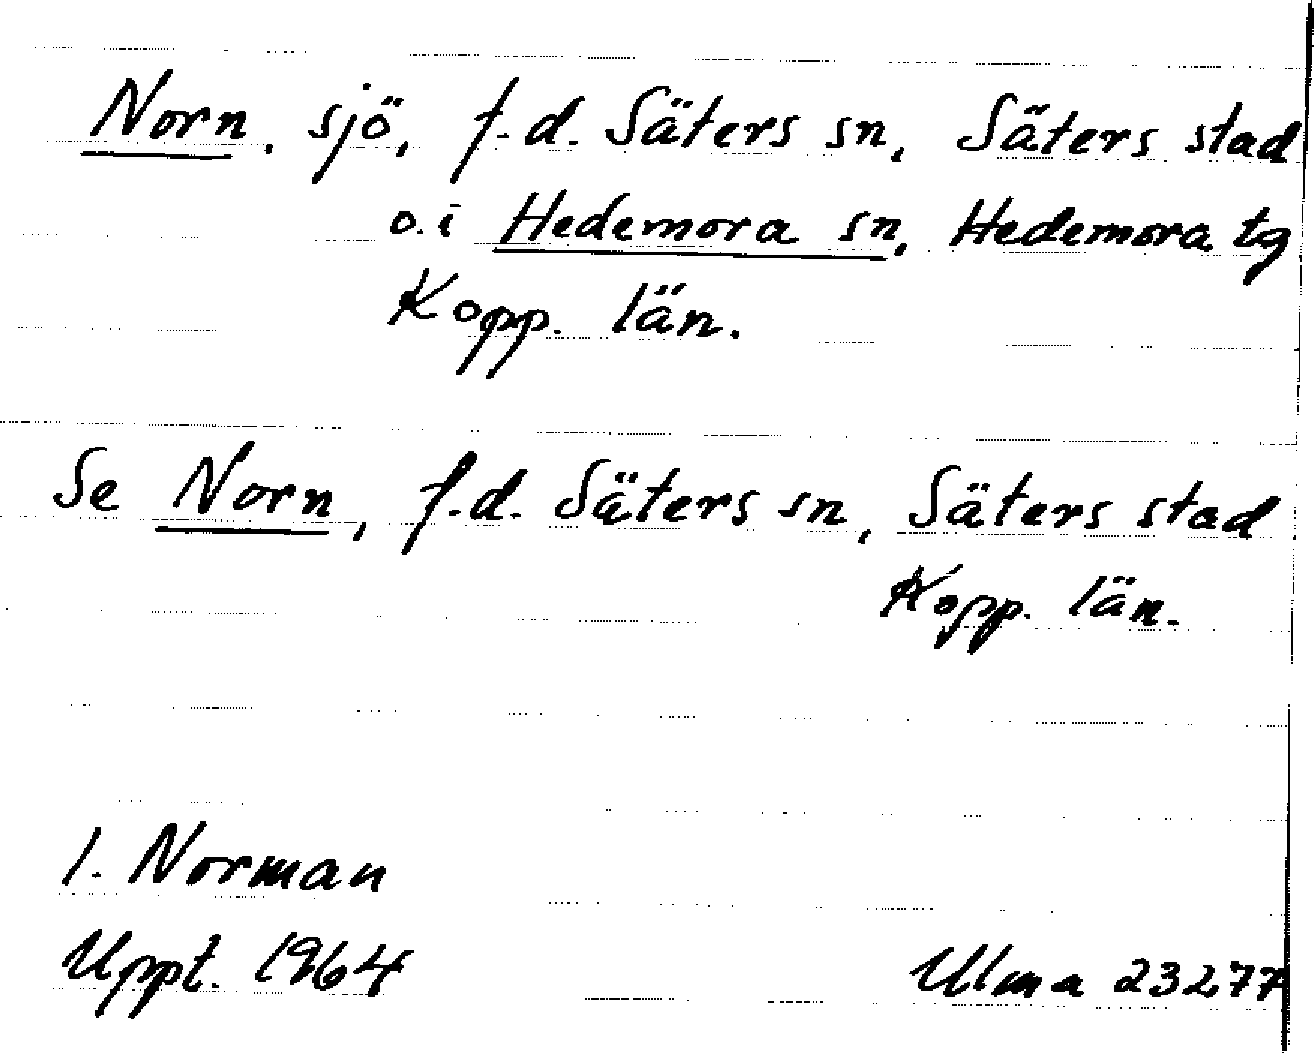 Norn, sjö, f.d. Säters sn, Säters stad
o. i Hedemora sn, Hedemora tg
Kopp. län.
Se Norn, f.d. Säters sn, Säters stad
Kopp. län.
I. Norman
Uppt. 1964
Ulma 23277